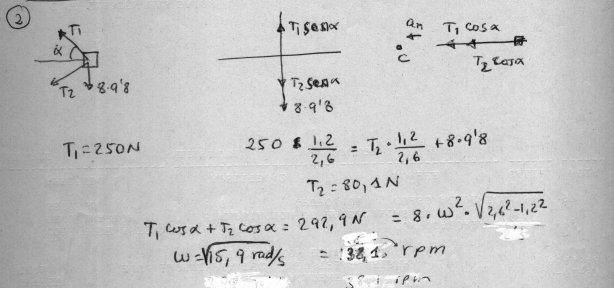 2
T₁
α
T₂ 8·9'8
T₁ senα
T₂ senα
8·9'8
aₙ
C
T₁ cosα
T₂ cosα
T₁ = 250N
250 · 1,2/2,6 = T₂ · 1,2/2,6 + 8·9'8
T₂ = 80,1N
T₁ cosα + T₂ cosα = 292,9N = 8 · ω² · √2,6²-1,2²
ω = √15,9 rad/s = 38,1 rpm